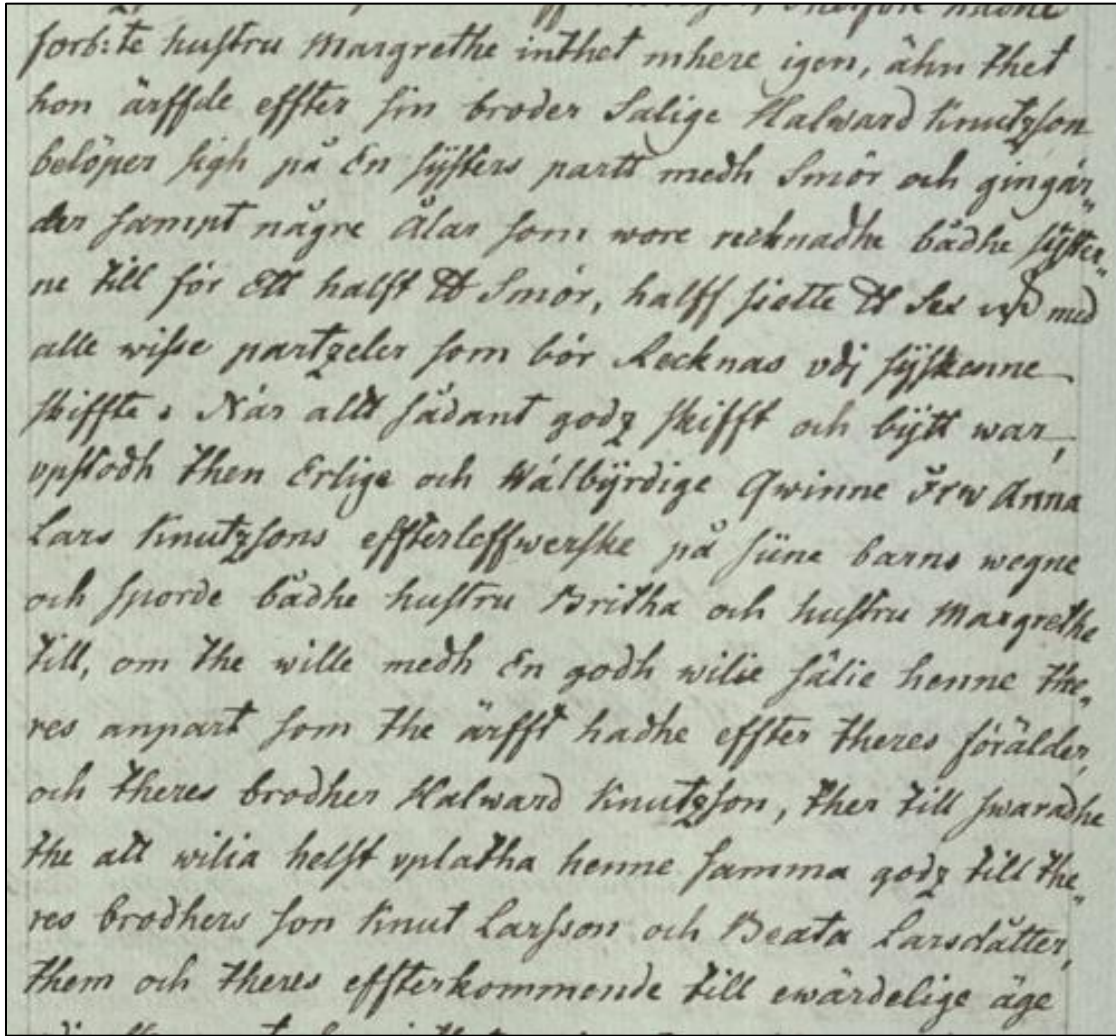 forb:te hustru Margrethe inthet mhere igen, ähn thet
hon ärffde effter sin broder Salige Halward Knutzson
belöper sigh på En systers partt medh Smör och gingär„
der sampt någre Alar som wore recknadhe bådhe syster„
ne till för Ett halft ℔ Smör, halff siette ℔ Sex med
alle wisse partzeler som bör Recknas vdj syskenne
skiffte. När allt sådant godz skifft och bÿtt war,
vpstodh then Erlige och Wälbÿrdige Qwinne Frw Anna
Lars Knutzsons effterleffwerske på süne barns wegne
och sporde bådhe hustru Britha och hustru Margrethe
till, om the wille medh En godh wilie sälie henne the„
res anpart som the ärfft hadhe effter theres förälder,
och theres brodher Halward Knutzson, ther till swaradhe
the att wilia helst vplatha henne samma godz till the„
res brodhers son Knut Larsson och Beata Larsdåtter,
them och theres effterkommende till ewärdelige äge